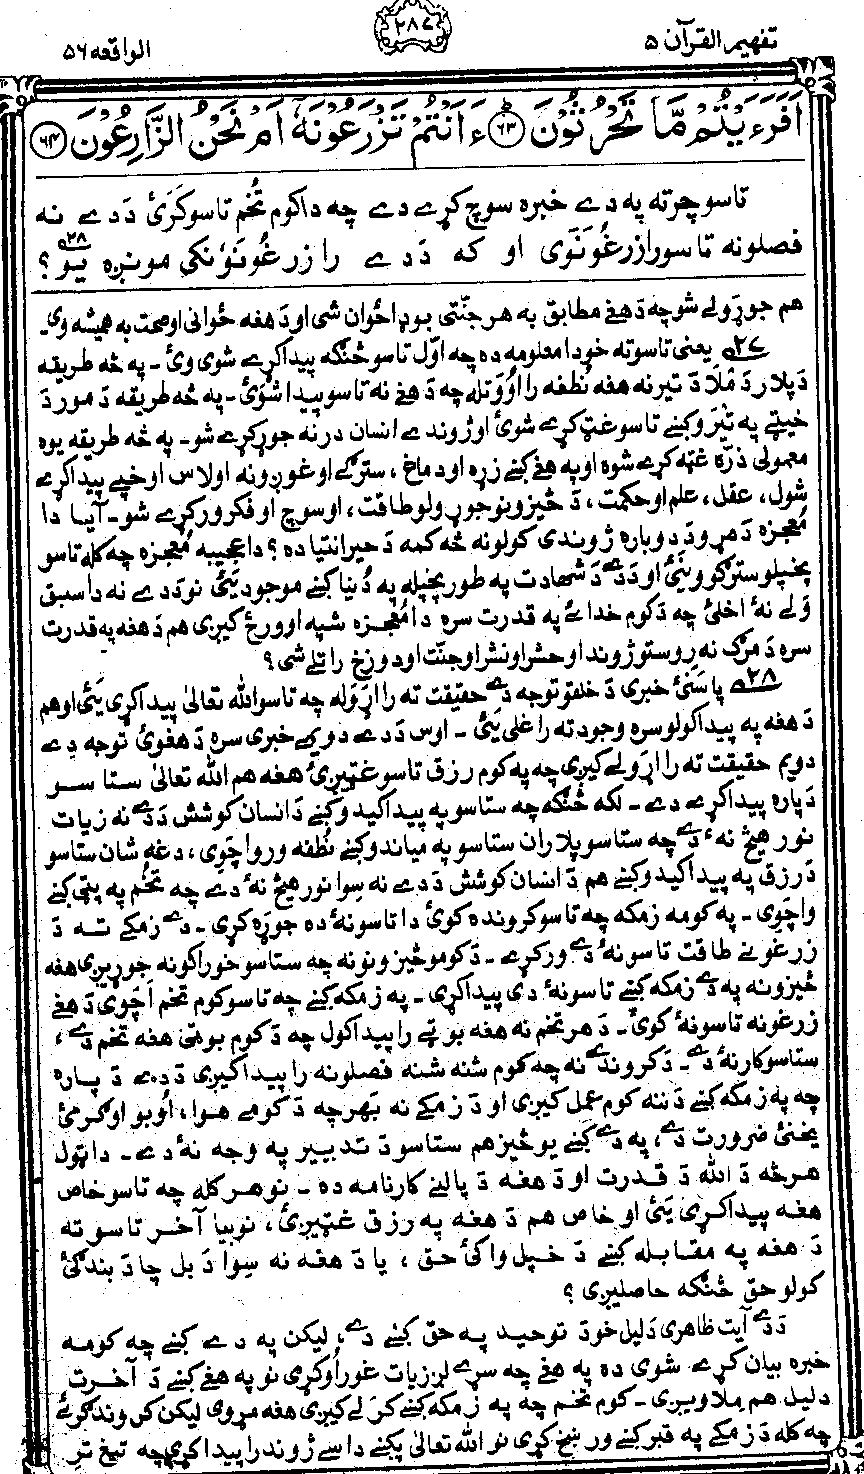 تفهيم القرآن ۵
۲۸۷
الواقعه ۵۶
اَفَرَءَيْتُمْ مَّا تَحْرُثُوْنَ ﴿۶۳﴾ ءَاَنْتُمْ تَزْرَعُوْنَهٗٓ اَمْ نَحْنُ الزَّارِعُوْنَ ﴿۶۴﴾
تاسو چرته په دے خبره سوچ کړے دے چه دا کوم تُخم تاسو کَرَئ دَ دے نه
فصلونه تاسو را زرغُونَوَی او که دَ دے را زرغُونَوُنکی مونږه یو ۲۸؟
هم جوړ ولے شو چه دَ هغے مطابق به هر جنّتی بوډا ځوان شی او دَ هغه ځوانی او صحت به همیشه وی۔
۲۷ یعنی تاسو ته خو دا معلومه ده چه اوّل تاسو څنګه پیدا کړے شوی وئ ۔ په څه طریقه
دَ پلار دَ مُلا دَ تیر نه هغه نُطفه را اُووَتله چه دَ هغے نه تاسو پیدا شوئ ۔ په څه طریقه دَ مور دَ
خیټے په تیَرو کښے تاسو غټ کړے شوئ او ژوندے انسان درنه جوړ کړے شو۔ په څه طریقه یوه
معمولی ذرّه غټه کړے شوه او په هغے کښے زړه او دماغ ، سترګے او غوږونه او لاس او خپے پیدا کړے
شول ، عقل ، علم او حکمت ، دَ څیزونو جوړولو طاقت ، او سوچ او فکر ورکړے شو۔ آیا دا
مُعجزه دَ مړو دَ دوباره ژوندی کولو نه څه کمه دَ حیرانتیا ده ؟ دا عجیبه مُعجزه چه کله تاسو
پخپلو سترګو وینئ او دَ دے دَ شهادت په طور پخپله په دُنیا کښے موجود یئ نو دَ دے نه دا سبق
ولے نهٔ اخلئ چه دَ کوم خدائے په قدرت سره دا مُعجزه شپه او ورځ کیږی هم دَ هغه په قدرت
سره دَ مرګ نه روستو ژوند او حشر او نشر او جنّت او دوزخ راتلے شی ؟
۲۸ پاسنئ خبری دَ خلقو توجه دے حقیقت ته را اړوله چه تاسو الله تعالیٰ پیدا کړی یئ او هم
دَ هغه په پیدا کولو سره وجود ته را غلی یئ ۔ اوس دَ دے دویمے خبری سره دَ هغوئ توجه دے
دویم حقیقت ته را اړولے کیږی چه په کوم رزق تاسو غټیږئ هغه هم الله تعالیٰ ستا سو
دَ پاره پیدا کړے دے ۔ لکه څنګه چه ستاسو په پیدا کیدو کښے دَ انسان کوشش دَ دے نه زیات
نور هیڅ نهٔ دے چه ستاسو پلاران ستاسو په میاندو کښے نُطفه ور واچَوی ، دغه شان ستاسو
دَ رزق په پیدا کیدو کښے هم دَ انسان کوشش دَ دے نه سوا نور هیڅ نهٔ دے چه تُخم په پټی کښے
واچَوی ۔ په کومه زمکه چه تاسو کروندہ کوئ دا تاسو نهٔ ده جوړه کړی ۔ دے زمکے ته دَ
زرغونے طاقت تاسو نهٔ دے ورکړے ۔ دَ کومو څیزونو نه چه ستاسو خوراکونه جوړیږی هغه
څیزونه په دے زمکه کښے تاسو نهٔ دی پیدا کړی ۔ په زمکه کښے چه تاسو کوم تخم اَچوئ دَ هغے
زرغونه تاسو نهٔ کوئ ۔ دَ هر تخم نه هغه بوټے را پیدا کول چه دَ کوم بوټی هغه تخم دے ،
ستاسو کار نهٔ دے ۔ دَ کروندے نه چه کوم شنه شنه فصلونه را پیدا کیږی دَ دے دَ پاره
چه په زمکه کښے دننه کوم عمل کیږی او دَ زمکے نه بهر چه دَ کومے هوا ، اُوبو او ګرمئ
یخنئ ضرورت دے ، په دے کښے یو څیز هم ستاسو دَ تدبیر په وجه نهٔ دے ۔ دا ټول
هر څه دَ الله دَ قدرت او دَ هغه دَ پالنے کارنامه ده ۔ نو هر کله چه تاسو خاص
هغه پیدا کړی یئ او خاص هم دَ هغه په رزق غټیږئ ، نو بیا آخر تاسو ته
دَ هغه په مقابله کښے دَ خپل واکئ حق ، یا دَ هغه نه سِوا دَ بل چا دَ بندګئ
کولو حق څنګه حاصلیږی ؟
دَ دے آیت ظاهری دلیل خو دَ توحید په حق کښے دے ، لیکن په دے کښے چه کومه
خبره بیان کړے شوی ده په هغے چه سړے لږ زیات غور اُوکړی نو په هغے کښے دَ آخرت
دلیل هم ملاویږی ۔ کوم تخم چه په زمکه کښے کَرَلے کیږی هغه مړ وی لیکن
چه کله دَ زمکے په قبر کښے ور ښخ کړی نو الله تعالیٰ پکښے دا سے ژوند را پیدا کړی چه